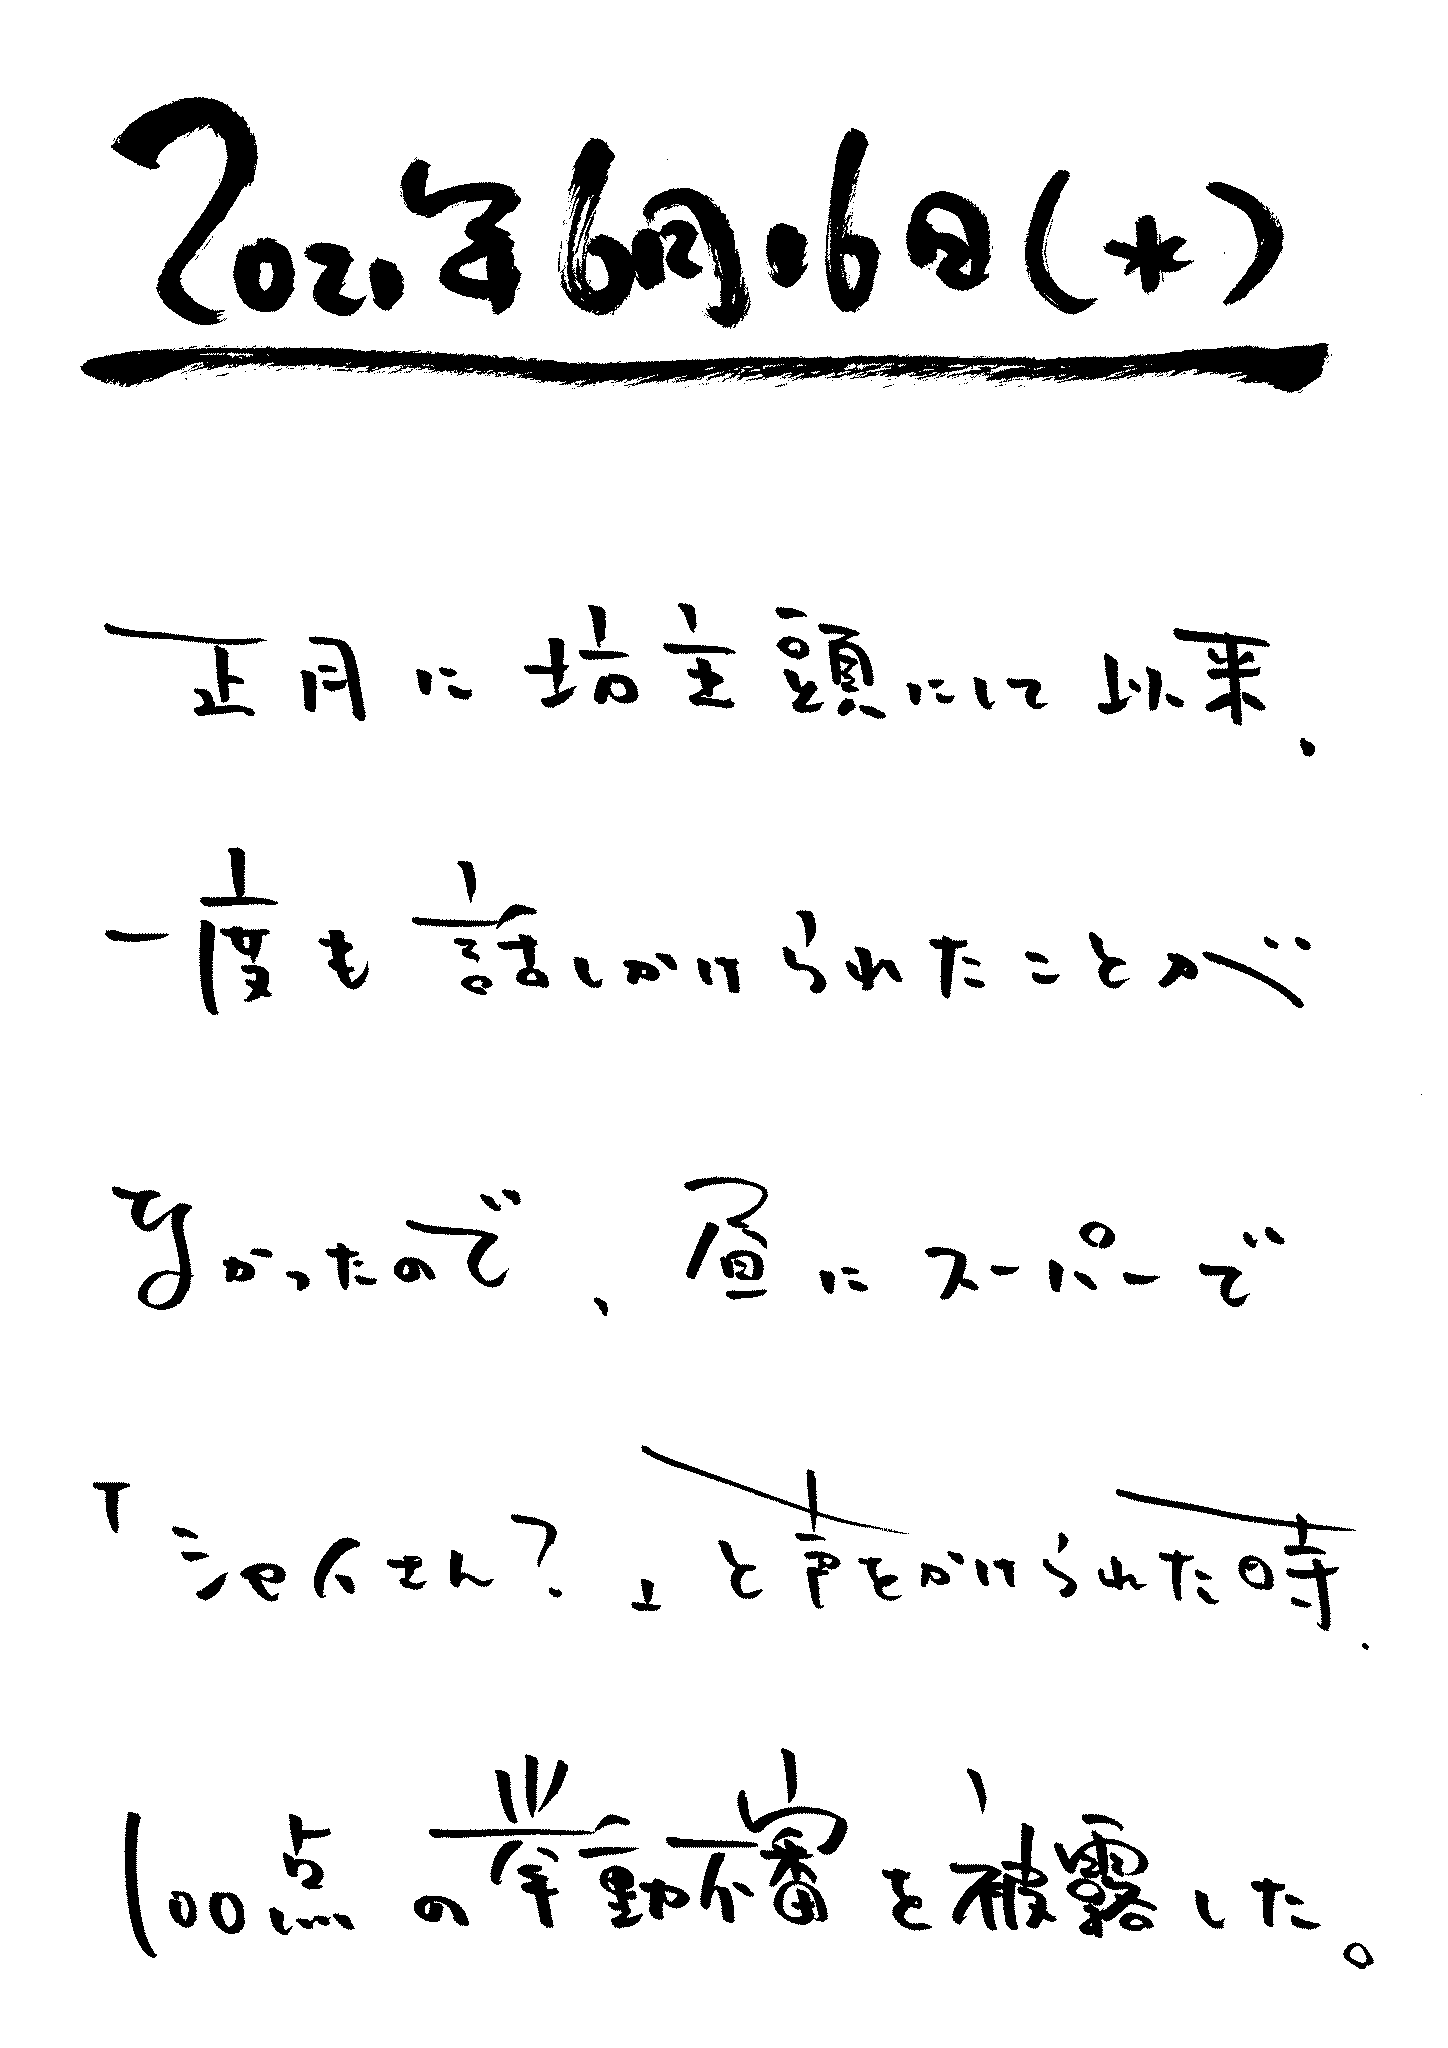 2021年6月16日(水)
正月に坊主頭にして以来、
一度も話しかけられたことが
なかったので、昼にスーパーで
「シャイさん?」と声をかけられた時、
100点の挙動不審を被露した。